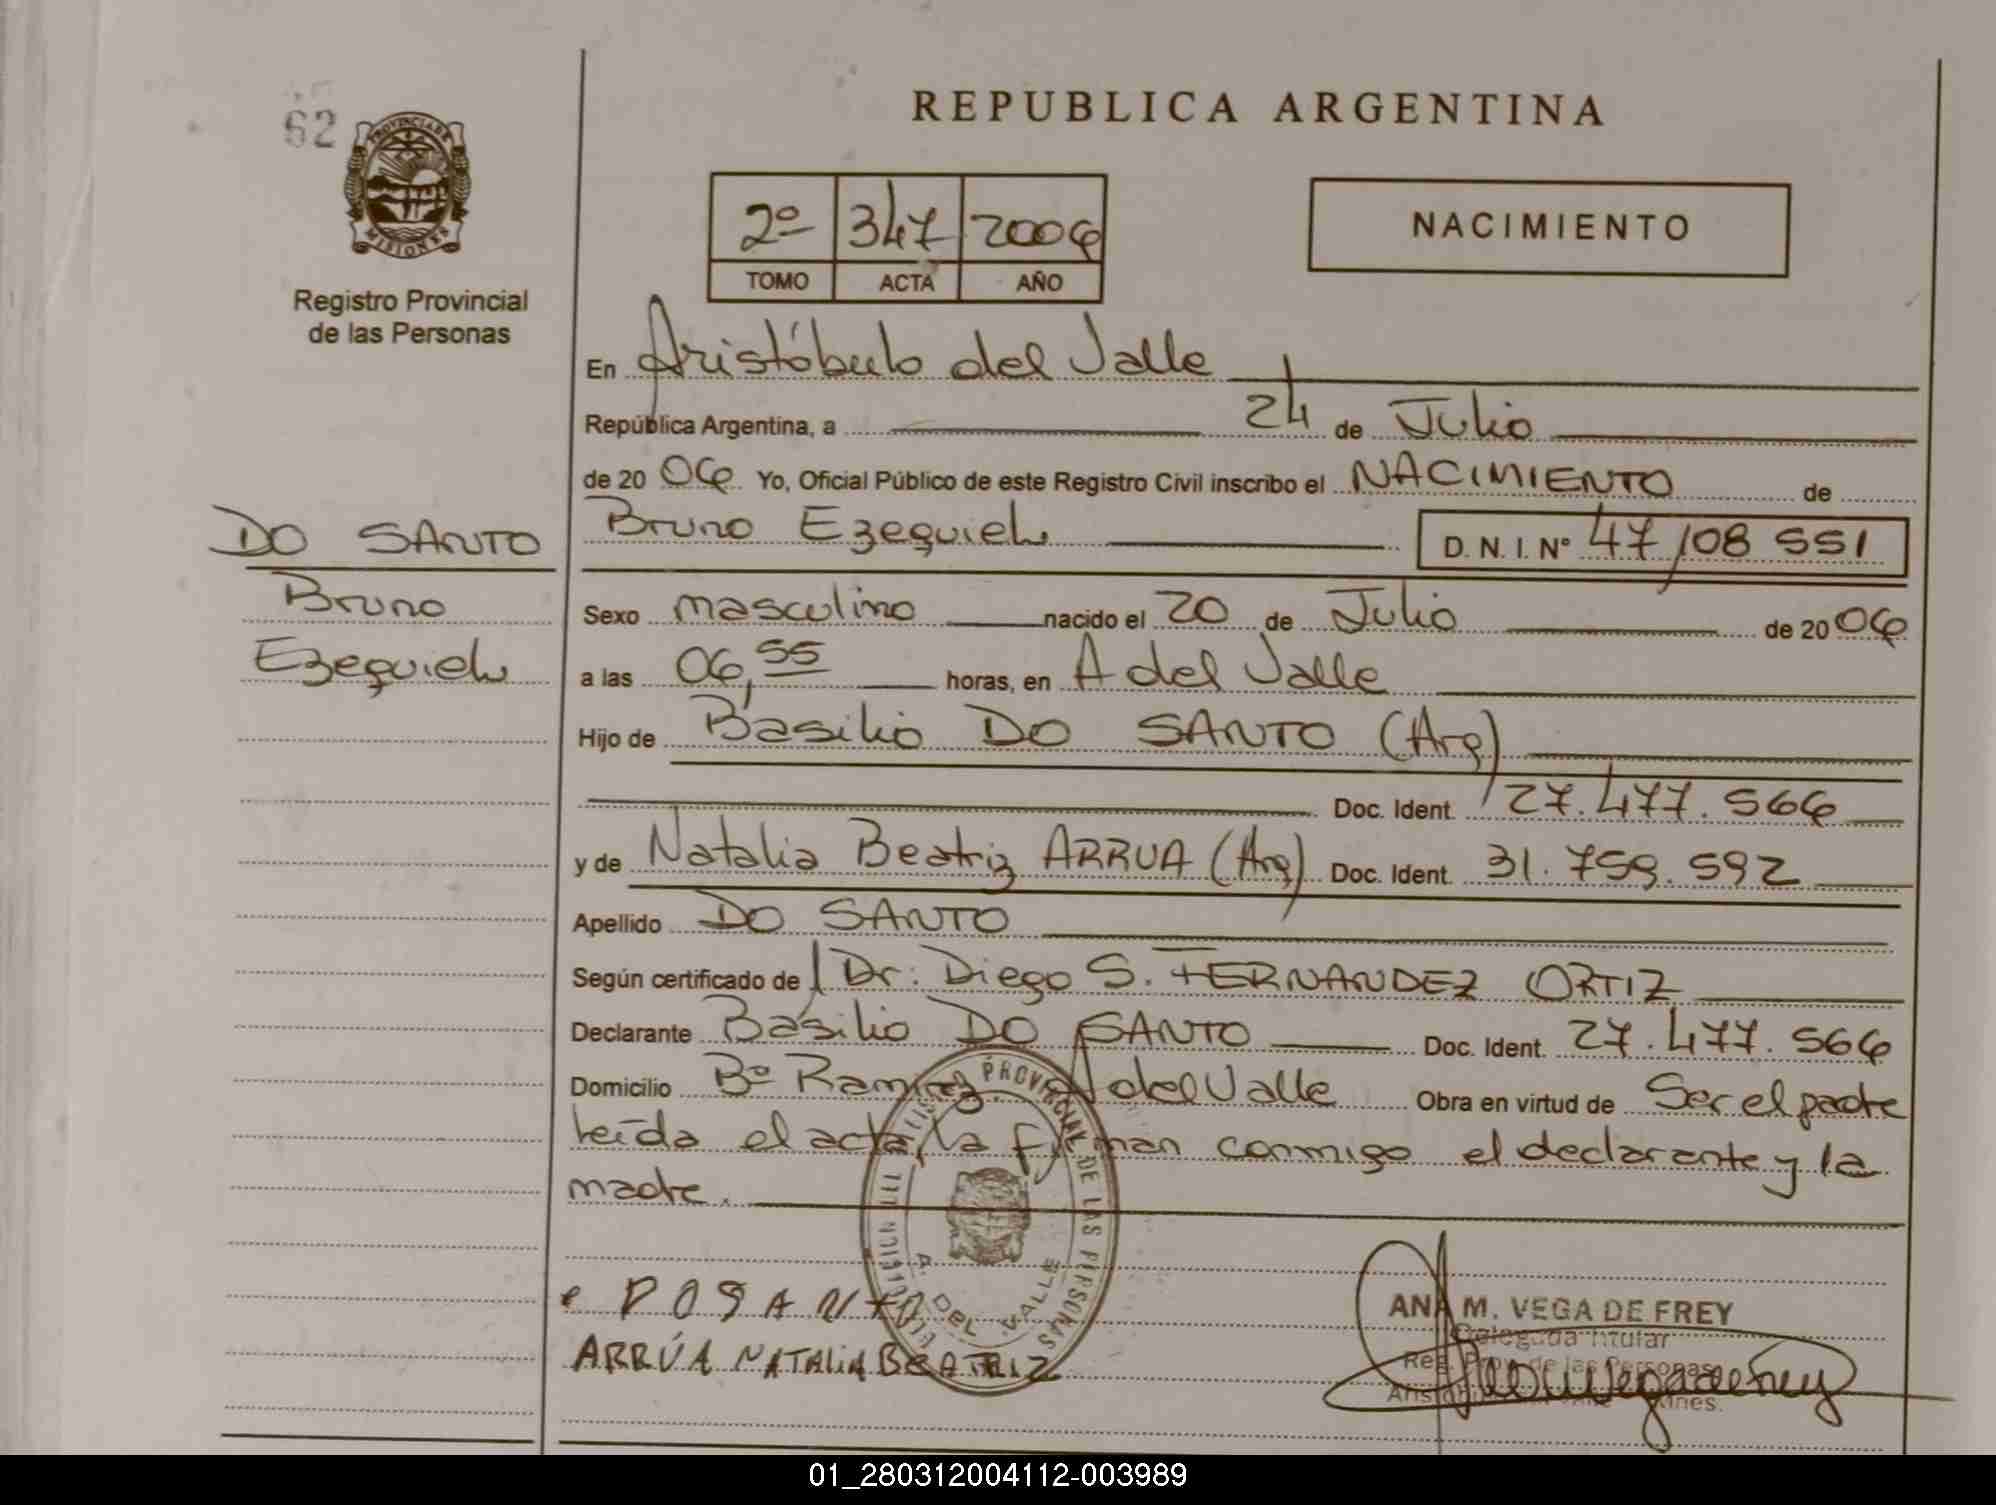 62
PROVINCIA DE
MISIONES
Registro Provincial
de las Personas
REPUBLICA ARGENTINA
2º 347 2006
TOMO ACTA AÑO
NACIMIENTO
En Aristóbulo del Valle
República Argentina, a 24 de Julio
de 20 06 Yo, Oficial Público de este Registro Civil inscribo el NACIMIENTO de
DO SANTO
Bruno
Ezequiel
Bruno Ezequiel D. N. I. Nº 47108551
Sexo masculino nacido el 20 de Julio de 20 06
a las 06,55 horas, en A del Valle
Hijo de Basilio DO SANTO (Arg)
Doc. Ident. 27.477.566
y de Natalia Beatriz ARRUA (Arg) Doc. Ident. 31.759.592
Apellido DO SANTO
Según certificado de Dr: Diego S. FERNANDEZ ORTIZ
Declarante Basilio DO SANTO Doc. Ident. 27.477.566
Domicilio Bº Ramírez. A del Valle Obra en virtud de Ser el padre
leída el acta, la firman conmigo el declarante y la
madre.
PROVINCIAL DE LAS PERSONAS
A. DEL VALLE
DOSANTO
ARRÚA NATALIA BEATRIZ
ANA M. VEGA DE FREY
Delegada Titular
Reg. Prov. de las Personas
01_280312004112-003989